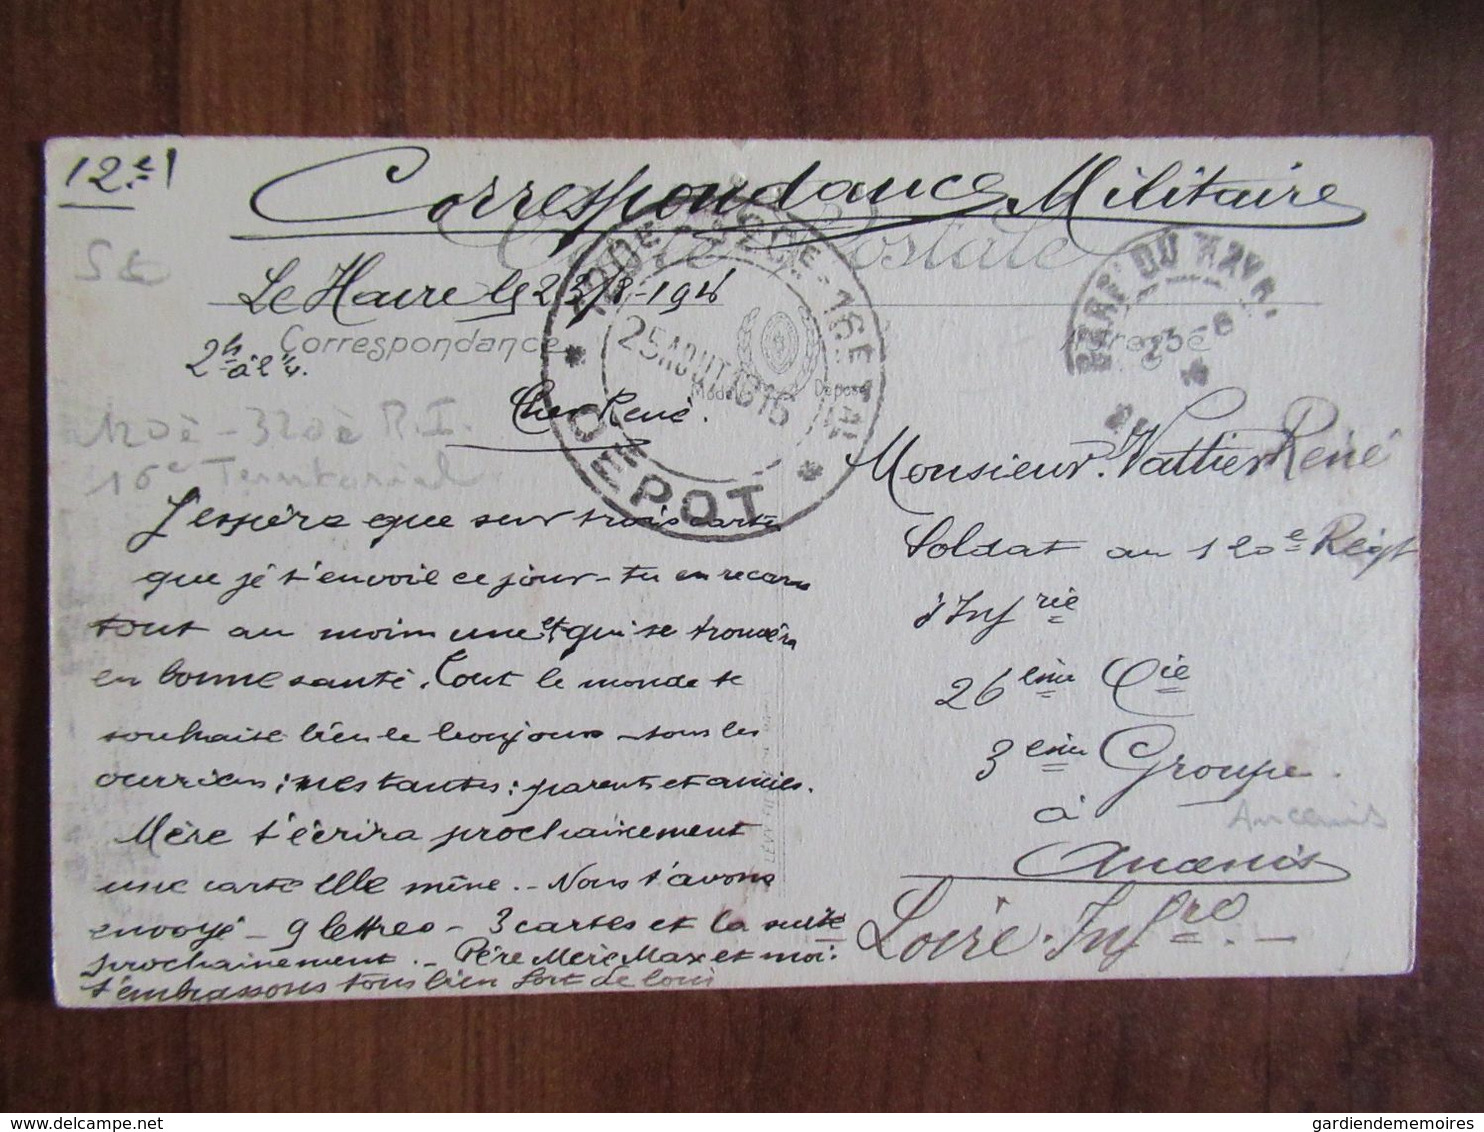 12e
Correspondance Militaire
Carte Postale
5 €
Le Havre le 23/8-1916
2h à l'¼.
Correspondance
Adresse
Modèle Déposé
120e - 320e - 16e
25 AOUT 1916
DEPOT
120è - 320è R.I.
16e Territorial
Cher René.
J'espère que sur trois cartes
que je t'envoie ce jour - tu en recevras
tout au moins une et qui te trouvera
en bonne santé. Tout le monde te
souhaite bien le bonjour - tous les
ouvriers; mes tantes; parents et amies.
Mère t'écrira prochainement
une carte elle même. - Nous t'avons
envoyé - 9 lettres - 3 cartes et la suite
prochainement. - Père Mère Max et moi:
t'embrassons tous bien fort de loin
Monsieur Vattier René
Soldat au 120e Régt
d'Infrie
26ème Cie
3ème Groupe.
à
Ancenis
Ancenis
Loire-Infre. -
delcampe.net
gardiendememoires